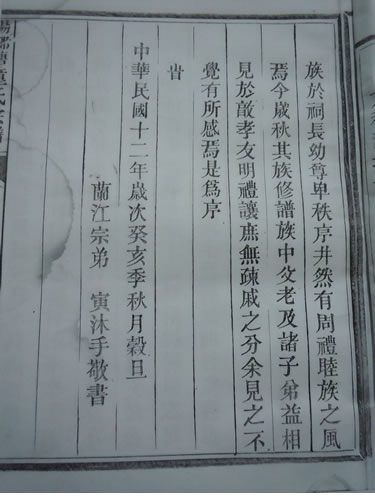 族於祠長幼尊卑秩序井然有周禮睦族之風
焉今歲秋其族修譜族中父老及諸子弟益相
見於敵孝友明禮讓庶無疎戚之分余見之不
覺有所感焉是為序
旹
中華民國十二年歲次癸亥季秋月穀旦
蘭江宗弟 寅沐手敬書